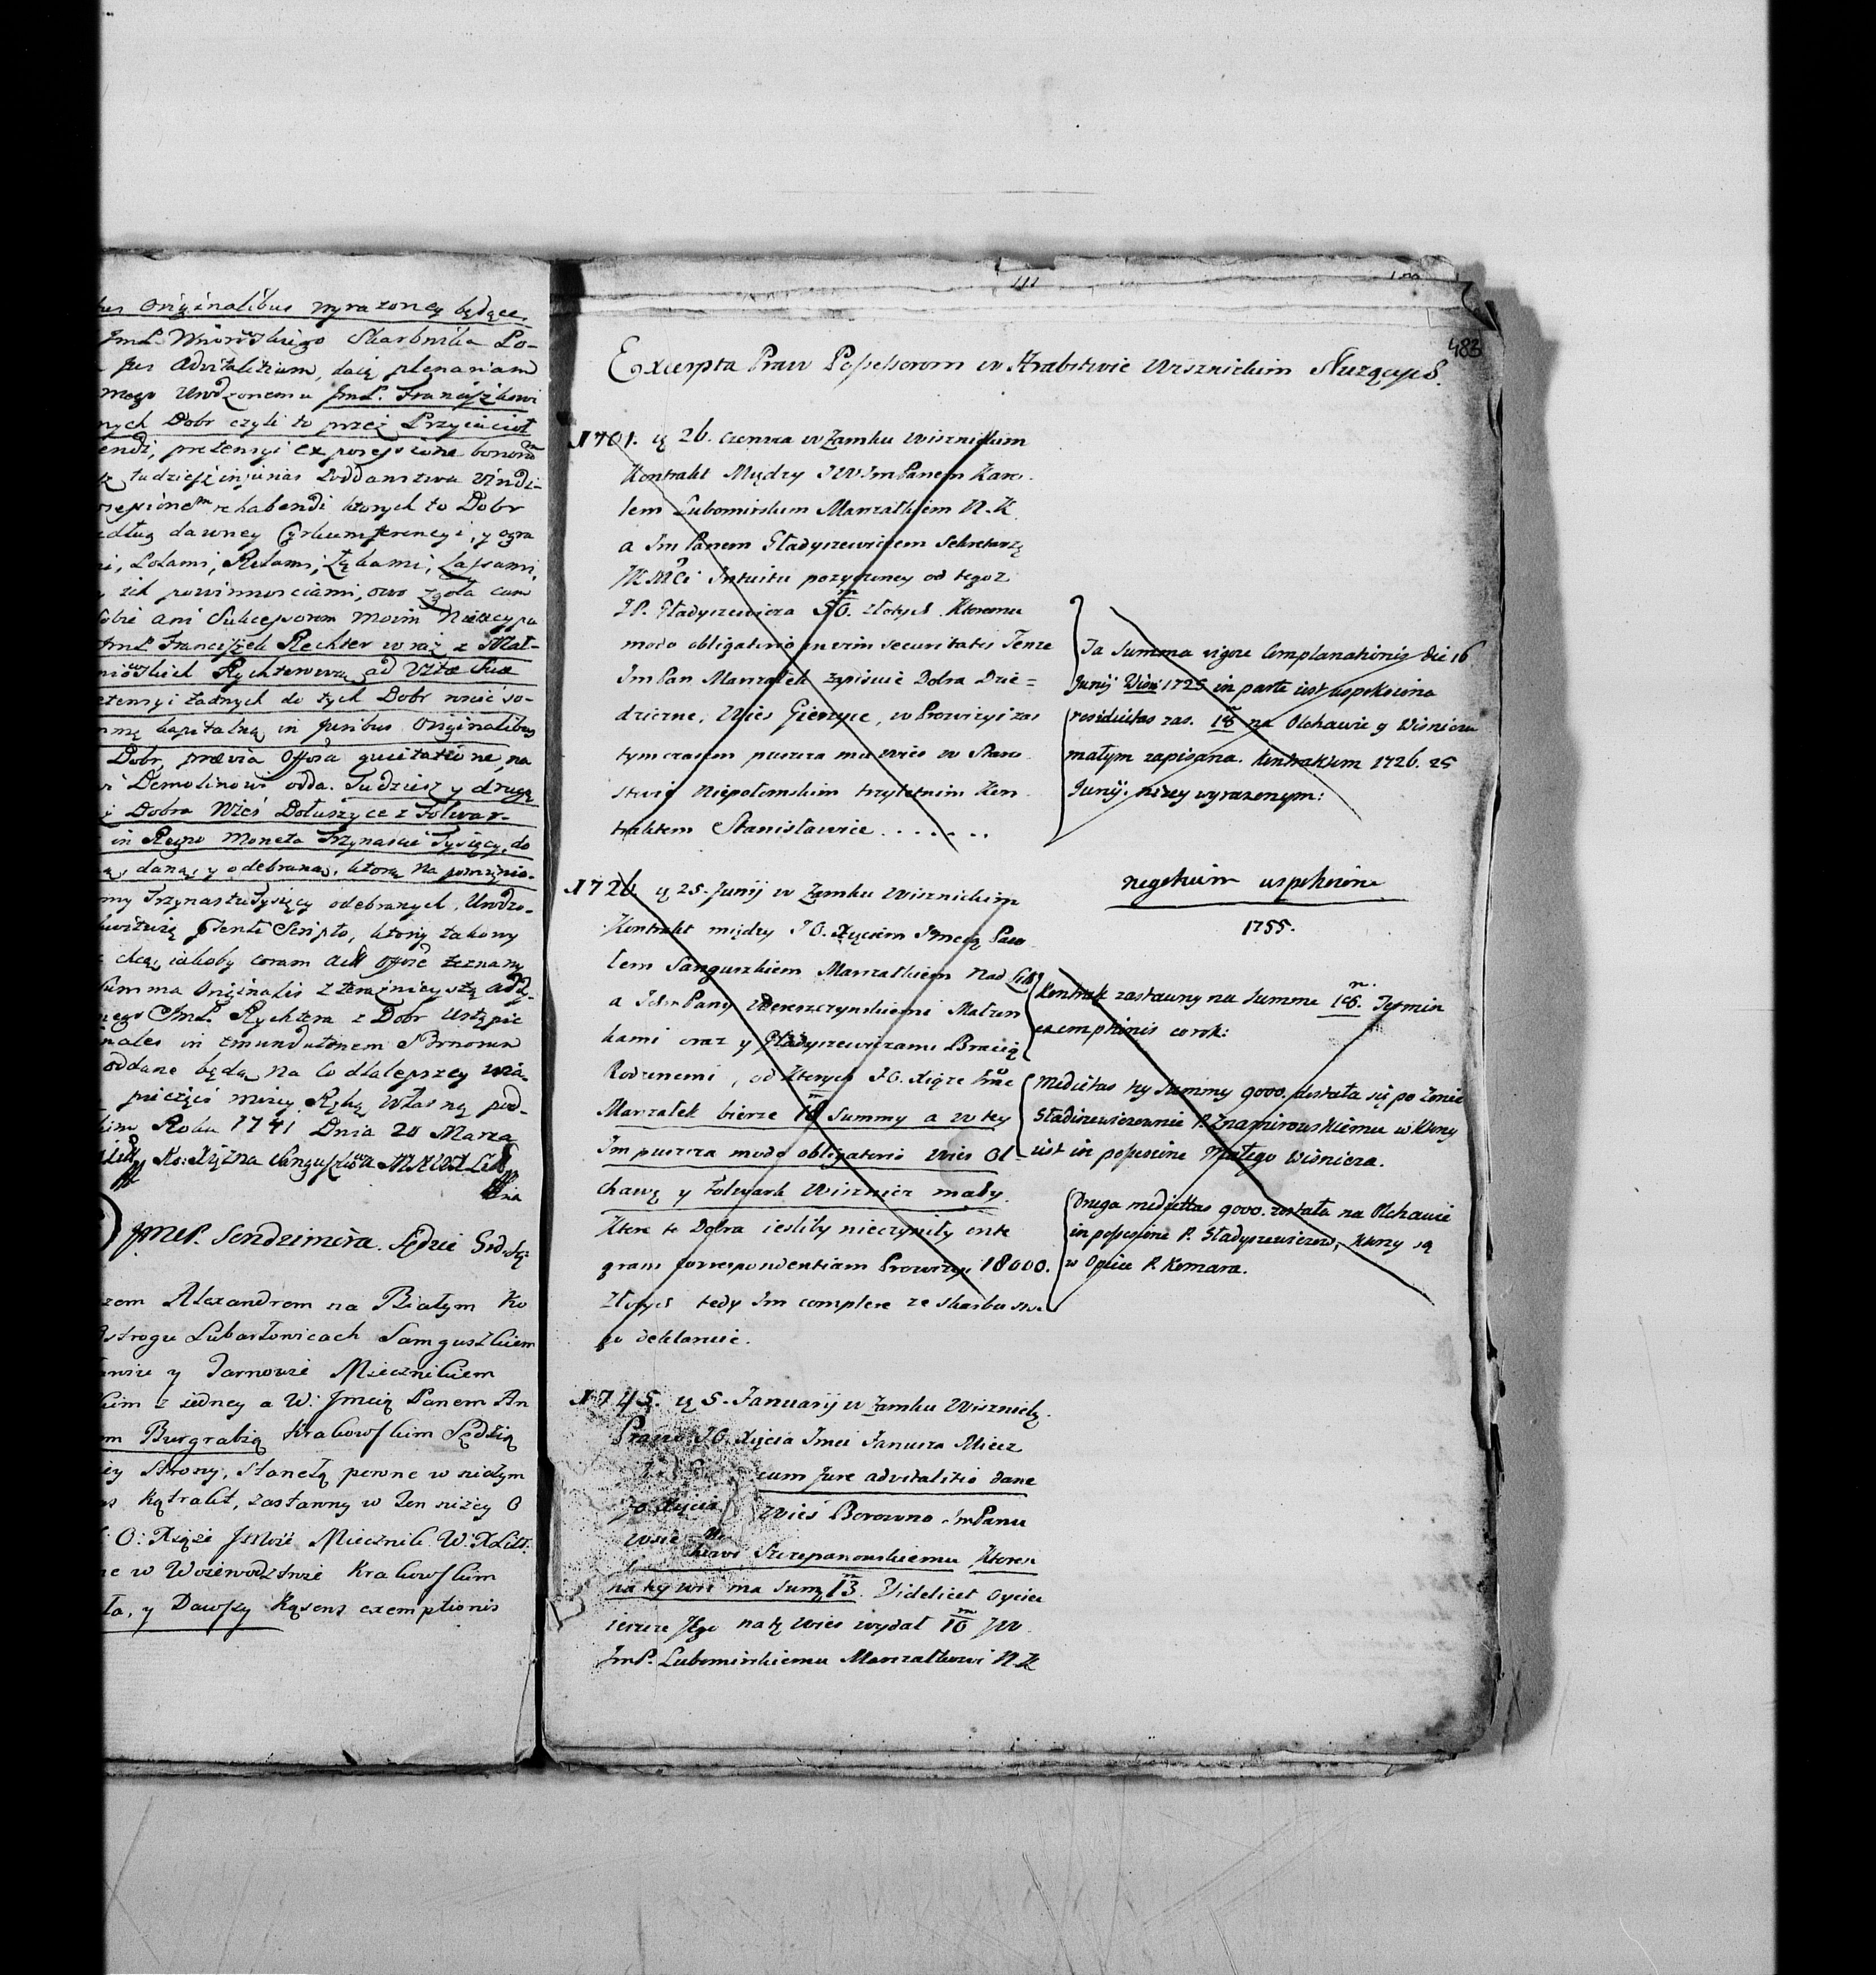 Originalibus wyrazoney będące
ImP. Wniowskiego Skarbnika Po-
Jus Advitalitium, daię plenariam
mego Urodzonemu ImP. Franciszkowi
nych Dobr czyli to przez Przyiacioł
endi, pretensyi ex possessione bonorum
tudziesz injurias Poddanstwa vindi-
rehabendi ktorych to Dobr
dług dawney Cyrkumferencyi, y ogra
Rolami, Łąkami, Lassami,
ich powinnosciami, owo zgoła cum
sobie ani Sukcessorom moim
ImP. Franciszek Rechter wraz z Mał-
Rychterową ad Vitæ Suæ
etensyi żadnych do tych Dobr mieć so-
mę kapitalną in Juribus Originalibus
Dobr, prævia Offsa quietatione, na
Demolinowi odda. Tudziesz y drugą
Dobra Wieś Dołuszyce z Folwar-
in Regno Moneta Trzynascie Tysięcy, do
daną, y odebraną, ktorą na pomienio-
my Trzynastu Tysięcy odebranych, Urodzo-
kwituię pnti Scripto, ktory takowy
chcę iakoby coram Actt Offsé zeznany
Summa Originalis z teraznieyszą
nego ImP. Rychtera z Dobr ustąpie
nales in
oddane będą, Na co dla lepszey wia-
pieczęci moiey Ręką Własną pod-
kim Roku 1741 Dnia 20 Marca
Xiężna Sanguszkowa
ImćP. Sendzimera. Sędzie Grodzkie
zem Alexandrem na Białym Ko
Ostrogu Lubartowicach Sanguszkiem
y Tarnowie Miecznikiem
kim z iedney a W: Jmcią Panem An
m Burgrabią Krakowskim Sędzią
ey Strony, Stanęłą pewne w niczym
Kątrakt, zastawny w Ten niżey O
O: Xsiąże Jmść Miecznik W: X Litt:
ne w Woiewodztwie Krakowskim
ła, y Dawszy Kąsens exemptionis
111
483
Excerpta Praw Possessorom w Hrabstwie Wisznickim Służących.
1701. d. 26. Czerwca w Zamku Wisznickim
Kontrakt Między JW ImPanem Karo-
lem Lubomirskim Marszałkiem N. K.
a ImPanem Gładyszewiczem Sekretarzę
JKMCi intuitu pozyczoney od tegoz
JP. Gładyszewicza 50. złotych. Ktoremu
modo obligatorio in vim securitatis Tenze
ImPan Marszałek zapisuie Dobra Dzie=
dziczne, Wies Gierczyce, w Prowizyi zas
tymczasem puszcza mu wies w Staro
stwie Niepołomskim trzyletnim Kon
traktem Stanisławice . . . . . . .
Ta Summa vigore Complanationis die 16
Junij Wisn: 1725 in parte iest uspokoiona
residuitas zas. 18 na Olchawie y Wisniczu
małym zapisana. Kontraktem 1726. 25
Junij. nizey wyrazonym:
1726 d. 25. Junij w Zamku Wisznickim
Kontrakt między JO. Xięciem Jmcią Paw
lem Sanguszkiem Marszałkiem Nad Litt:
a IchmPany Wereszczynskiemi Małzon
kami oraz y Gładyszewiczami Bracią
Rodzonemi, od Ktorych JO. Xiąze Jmć
Marszałek bierze 18 Summy a w tey
Im puszcza modo obligatorio wies Ol
chawę y Folwark Wisznicz mały.
Ktore to Dobra iesliby nieczyniły inte
gram correspondentiam Prowizyi 18000.
Złotych tedy Im complere ze skarbu swe
go deklaruie.
negotium uspokoione
1755.
Kontrakt zastawny na Summe 18. Termin
exemptionis corok:
Medietas tey Summy 9000. dostała się po Zonie
Gładiszewiczownie P. Znamirowskiemu w Ktorey
iest in possessione Małego Wisnicza.
Druga medietas 9000. została na Olchawie
in possessione P. Gładyszewiczow, Ktorzy są
w Opiece P. Komara.
1745. d. 5. Januarij w Zamku Wisznick:
Prawo JO. Xięcia Jmci Janusza Miecz
cum Jure advitalitio dane
JO. Xięcia wieś Borowno ImPanu
Szczepanowskiemu Ktoren
na tey wsi ma summę 13. Videlicet Oyciec
ieszcze Jego na tę wies wydał 10 JW.
ImP. Lubomirskiemu Marszałkowi N. K